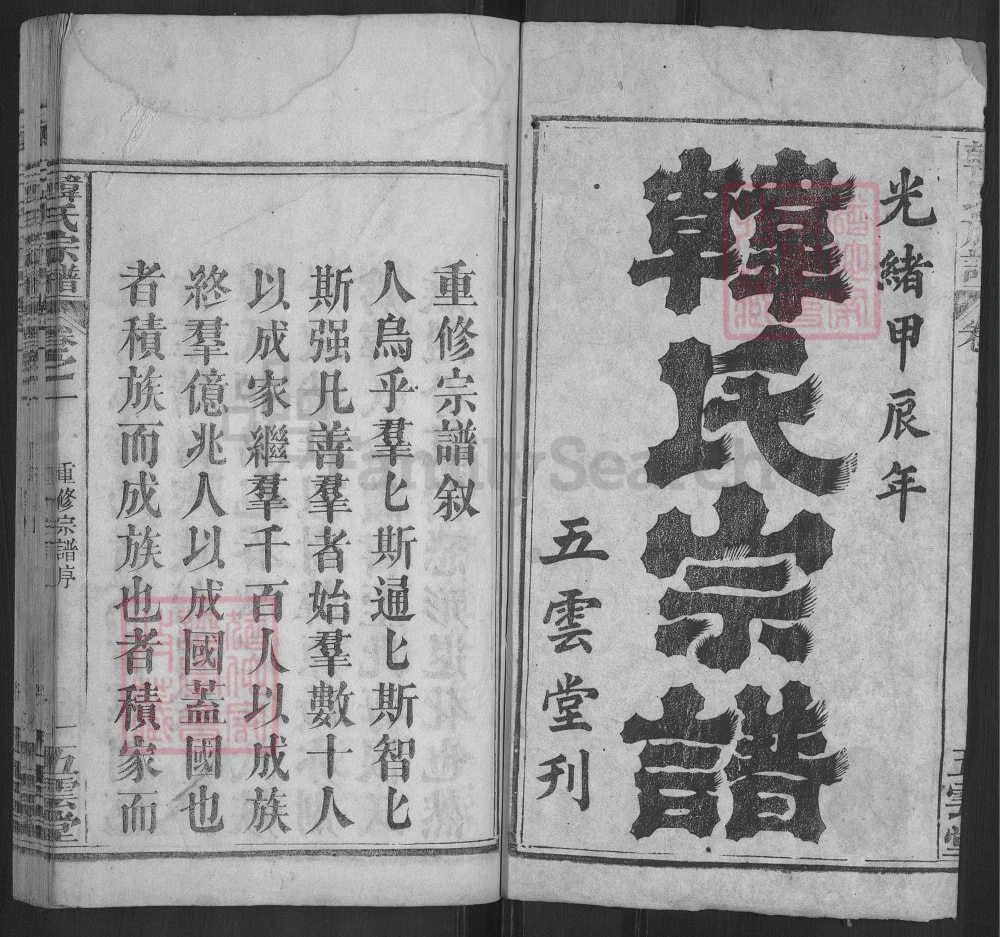 光緒甲辰年
韓氏宗譜
五雲堂刊
重修宗譜叙
人烏乎羣匕斯通匕斯智匕
斯强凡善羣者始羣數十人
以成家繼羣千百人以成族
終羣億兆人以成國蓋國也
者積族而成族也者積家而
韓氏宗譜
卷之一
重修宗譜序
一
五雲堂
FamilySearch